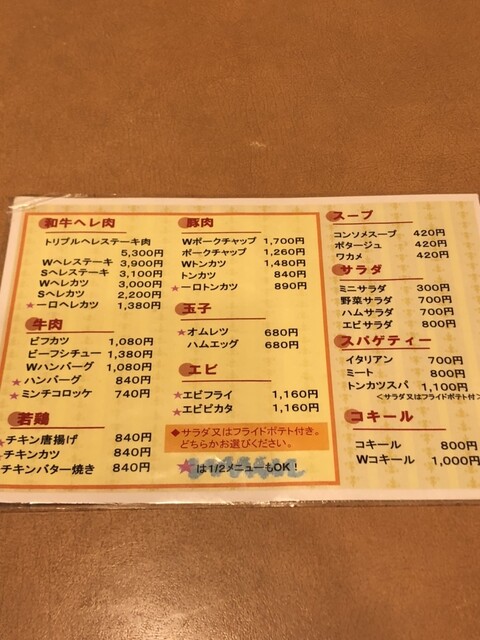 和牛ヘレ肉
トリプルヘレステーキ肉
5,300円
Wヘレステーキ 3,900円
Sヘレステーキ 3,100円
Wヘレカツ 3,000円
Sヘレカツ 2,200円
★一口ヘレカツ 1,380円
牛肉
ビフカツ 1,080円
ビーフシチュー 1,380円
Wハンバーグ 1,080円
★ハンバーグ 840円
★ミンチコロッケ 740円
若鶏
★チキン唐揚げ 840円
★チキンカツ 840円
チキンバター焼き 840円
豚肉
Wポークチャップ 1,700円
ポークチャップ 1,260円
Wトンカツ 1,480円
トンカツ 840円
★一口トンカツ 890円
玉子
★オムレツ 680円
ハムエッグ 680円
エビ
★エビフライ 1,160円
★エビピカタ 1,160円
◆サラダ又はフライドポテト付き。
どちらかお選びください。
★は1/2メニューもOK!
スープ
コンソメスープ 420円
ポタージュ 420円
ワカメ 420円
サラダ
ミニサラダ 300円
野菜サラダ 700円
ハムサラダ 700円
エビサラダ 800円
スパゲティー
イタリアン 700円
ミート 800円
トンカツスパ 1,100円
<サラダ又はフライドポテト付>
コキール
コキール 800円
Wコキール 1,000円